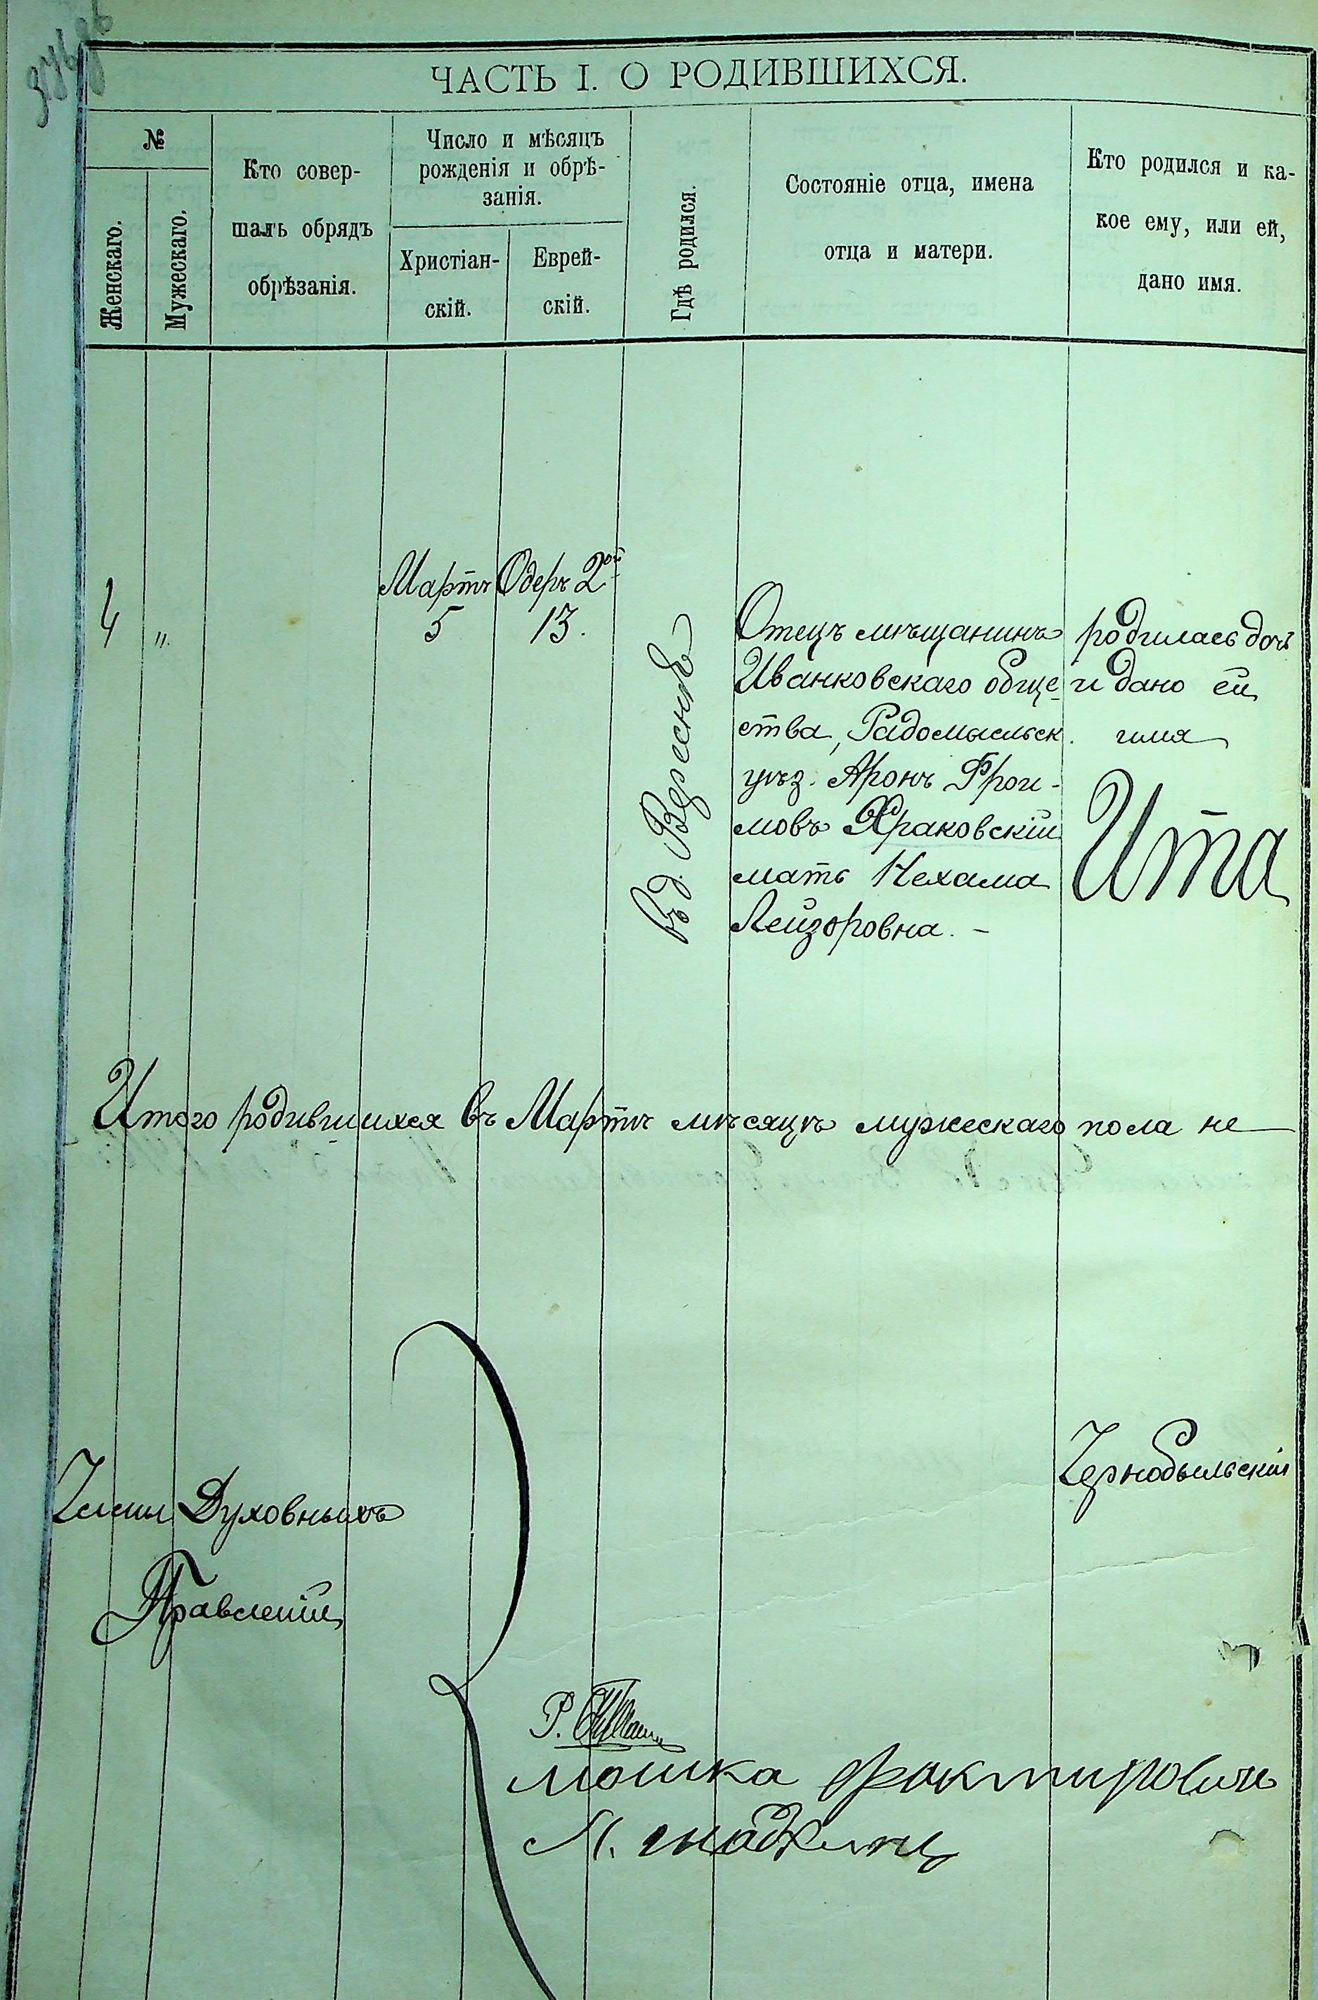 ЧАСТЬ I. О РОДИВШИХСЯ.
№
Женскаго.
Мужескаго.
Кто совер-
шалъ обрядъ
обрѣзанія.
Число и мѣсяцъ
рожденія и обрѣ-
занія.
Христіан-
скій.
Еврей-
скій.
Гдѣ родился.
Состояніе отца, имена
отца и матери.
Кто родился и ка-
кое ему, или ей,
дано имя.
Мартъ
5
Одеръ 2ой
13.
4
"
въ д. Вереснѣ
Отецъ мѣщанинъ
Иванковскаго обще-
ства, Радомысльск.
уѣз. Аронъ Фрои-
мовъ Краковскій
мать Нехама
Лейзоровна. –
родилась дочь
и дано ей
имя
Ита
Итого родившихся въ Мартѣ мѣсяцѣ мужескаго пола не
Чернобыльскій
Члены Духовныхъ
Правленій
Р.
Мошка